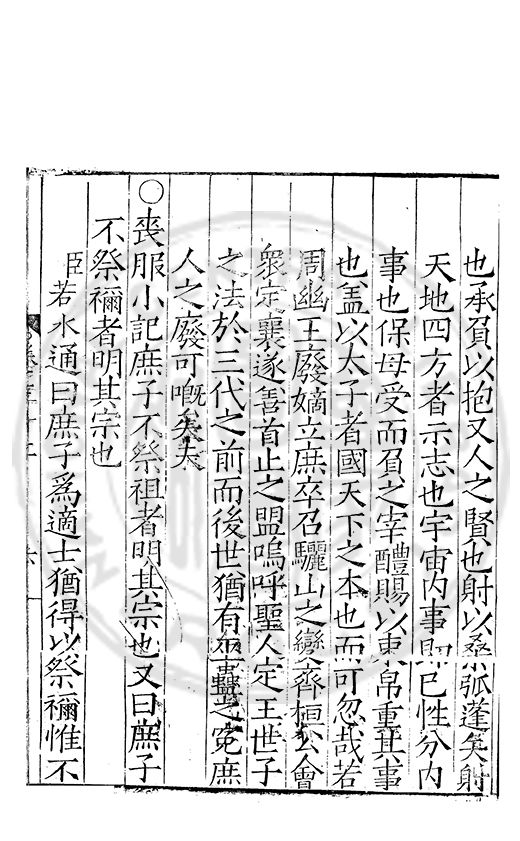 也承負以抱又人之賢也射以桑弧蓬矢射
天地四方者示志也宇宙内事即已性分内
事也保母受而負之宰醴賜以束帛重其事
也盖以太子者國天下之本也而可忽哉若
周幽王廢嫡立庶卒召驪山之變齊桓公會
衆定襄遂善首止之盟嗚呼聖人定王世子
之法於三代之前而後世猶有巫蠱之寃庶
人之廢可嘅矣夫
○喪服小記庶子不祭祖者明其宗也又曰庶子
不祭禰者明其宗也
臣若水通曰庶子爲適士猶得以祭禰惟不